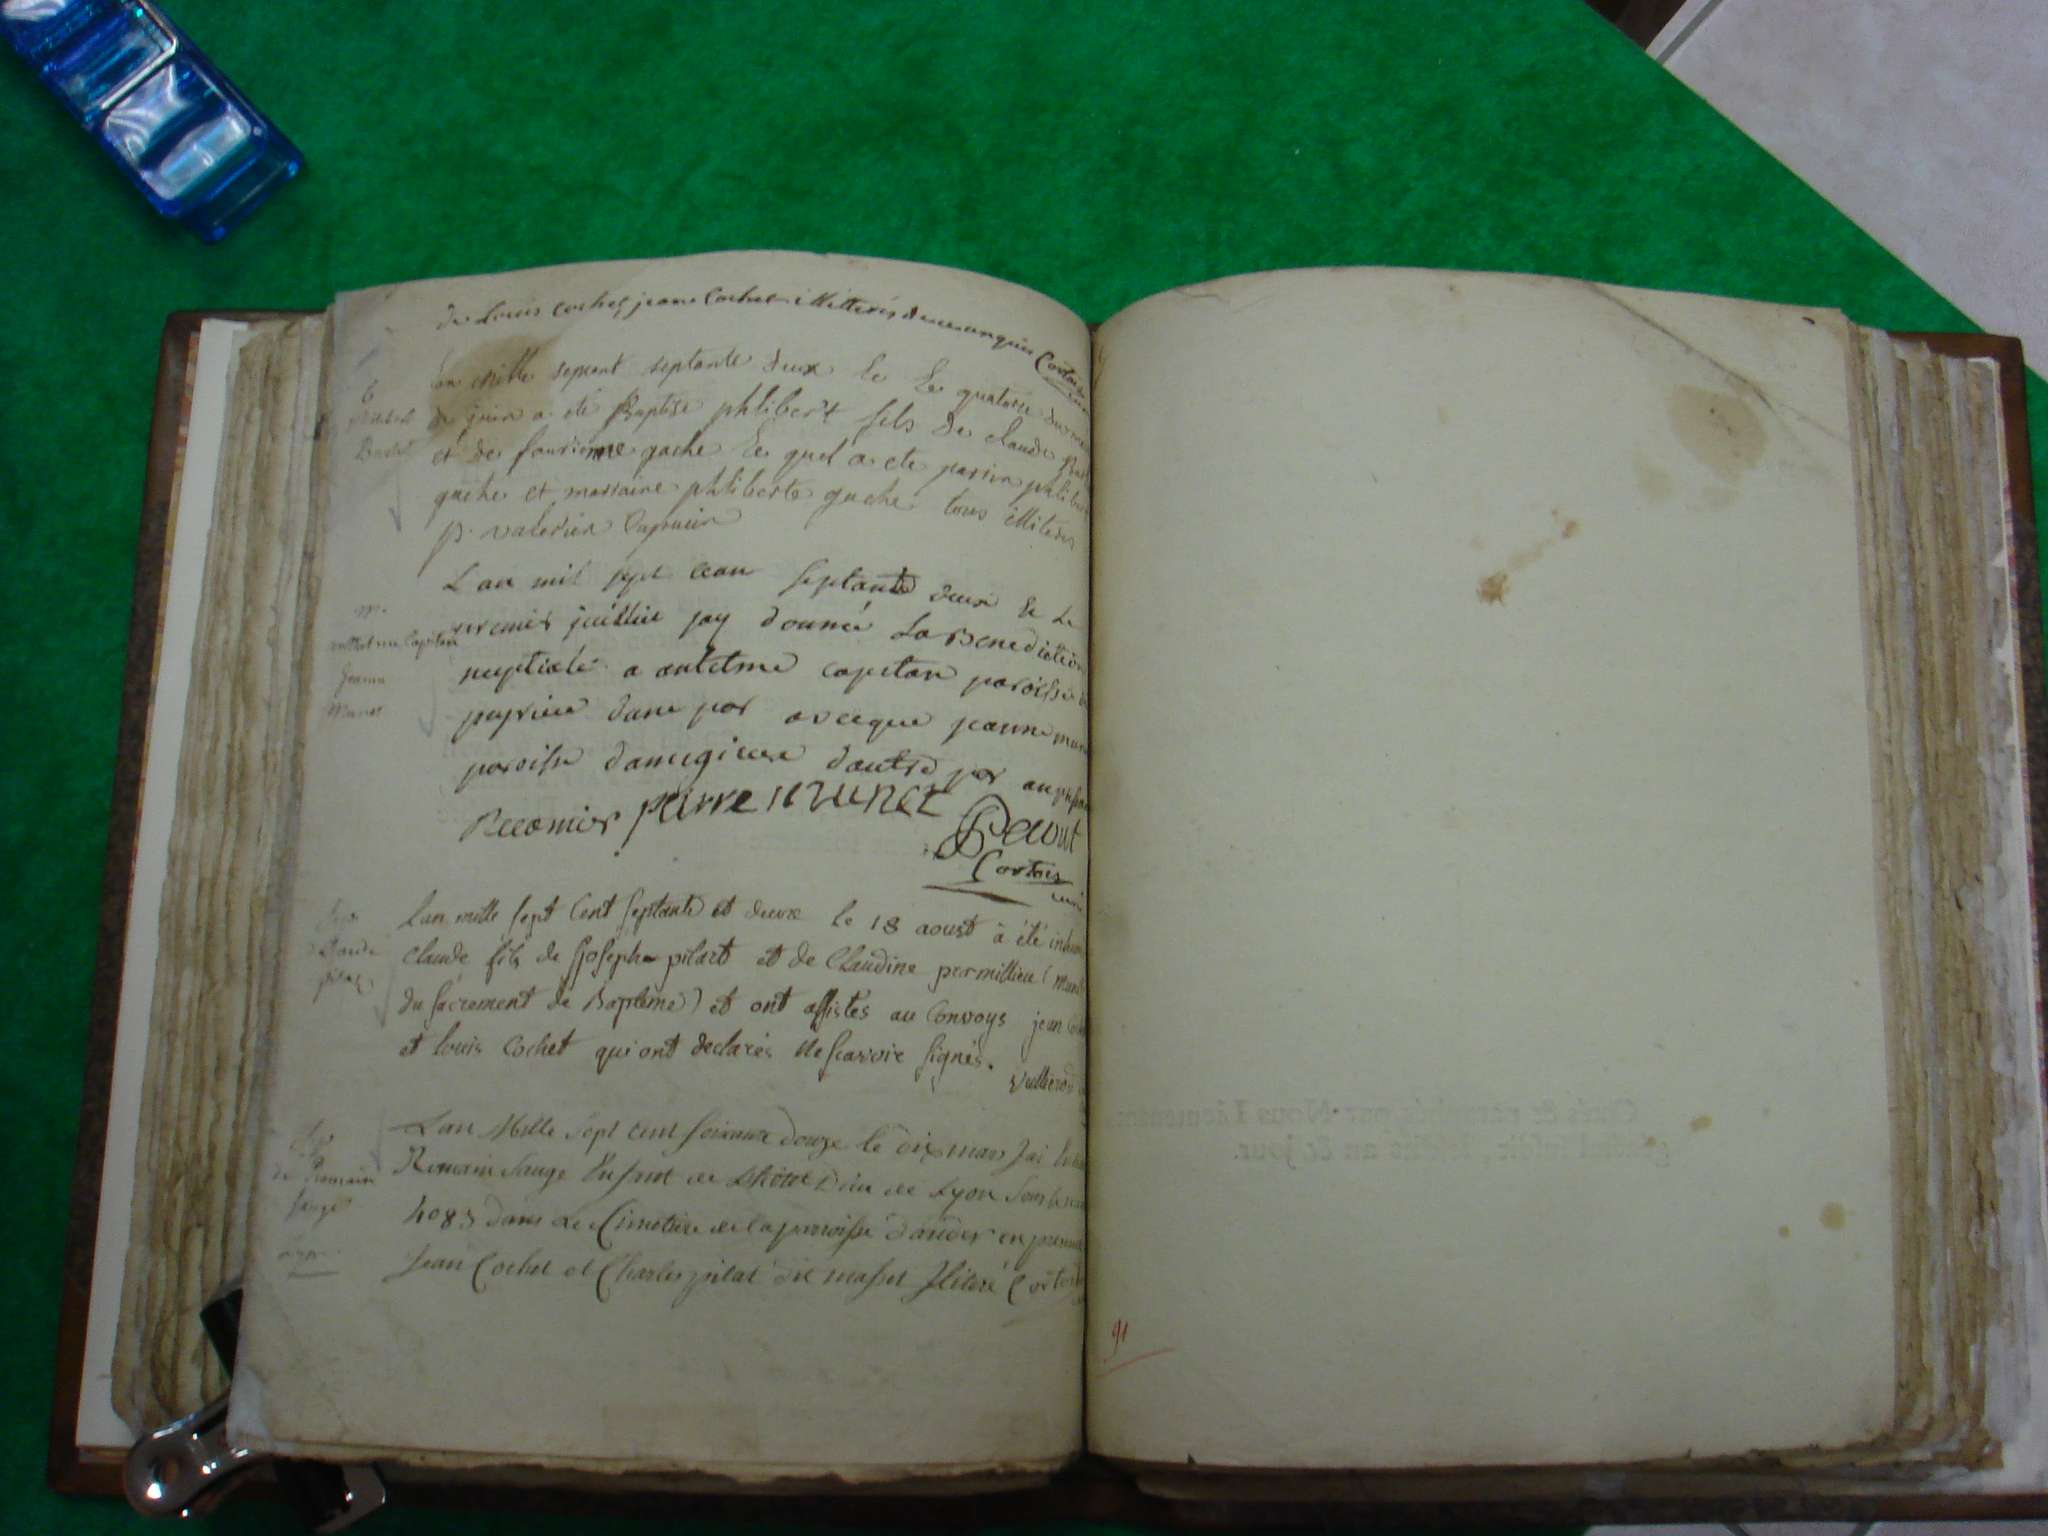 de Louis cochet jean Cochet illitterés de ce enquis Cortois
curé
B
philibert
lan mille sepcent septante deux le Le quatorze
de juin a été Baptise phlibert fils de claude
et de gache le quel a ete parin phlibert
gache et marraine phliberte gache tous illiteres
p. valerien Capucin
M.
anthelme Capitan
Jeanne
Munet
Lan mil sept cean septante deux & le
premier juilliet jay donnée La Benediction
nuptiale a antelme capitan paroisse de
peyrieu dune par avecque jeanne
paroisse dawegieux dautre par
Recomier peirre munet
Cortois
curé
Claude
pilat
Lan mille sept Cent septante et deux le 18 aoust à été
claude fils de Joseph pilact et de Claudine permillieu (muni
du sacrement de Baptême) et ont assistés au Convoys jean
et louis Cochet qui ont declarés ne scavoir signés.
de Romain
sauge
Lan Mille sept cent soixante douze le dix mars Jai
Romain Sauge Enfant de Lhotel Dieu de Lyon sous le
4083 dans Le Cimetiere de la paroisse dandert en presence
Jean Cochet et Charles pilat dit masset Iliteré Cortois
91
Cotés & paraphés par Nous Lieutenant